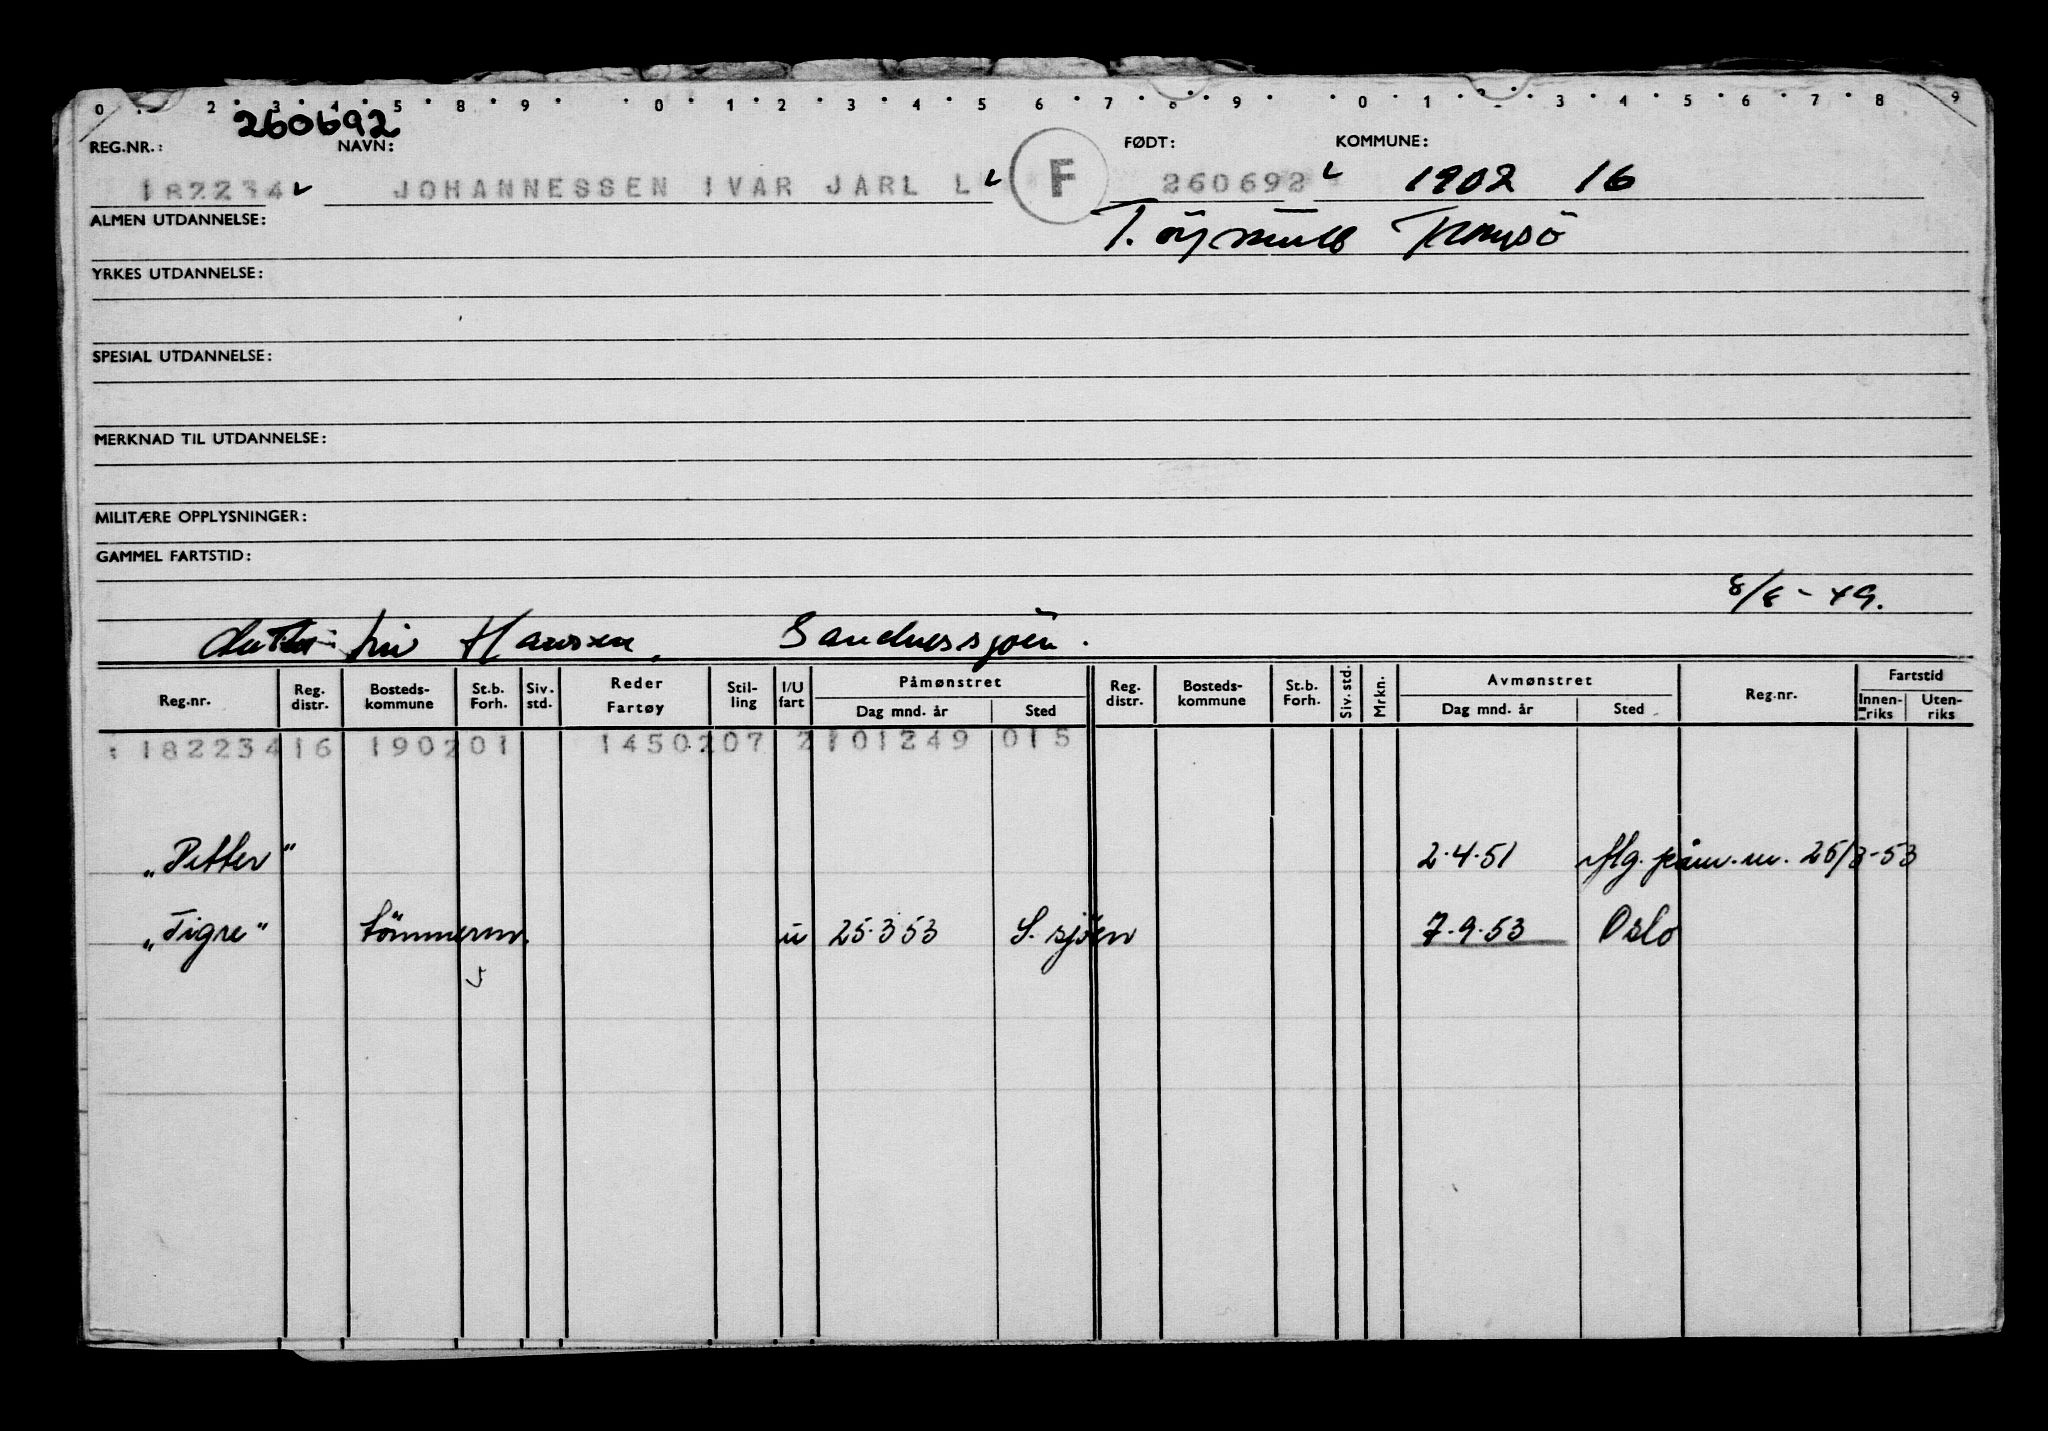 0 . 2 . 3 . 4 . 5 . 8 . 9 . . 0 . 1 . 2 . 3 . 4 . 5 6 . 7 . 8 . 9 . . 0 . 1 . 2 . 3 . 4 . 5 . 6 . 7 . 8 . 9
260692
REG.NR.: NAVN: FØDT: KOMMUNE:
182234 JOHANNESSEN IVAR JARL L F 260692 1902 16
ALMEN UTDANNELSE: Tromsö
YRKES UTDANNELSE:
SPESIAL UTDANNELSE:
MERKNAD TIL UTDANNELSE:
MILITÆRE OPPLYSNINGER:
GAMMEL FARTSTID:
8/8 - 49.
Hansen, Sandnessjöen.
Reg.nr. Reg. distr. Bosteds-kommune St.b. Forh. Siv. std. Reder Fartøy Stil-ling I/U fart Påmønstret Dag mnd. år Sted Reg. distr. Bosteds-kommune St.b. Forh. Siv. std. Mrkn. Avmønstret Dag mnd. år Sted Reg.nr. Fartstid Innen-riks Uten-riks
: 182234 16 190201 1450207 2 101249 015
"Petter" 2.4.51 iflg. påm.m. 25/3-53
"Tigre" tömmerm. u 25.3 53 S. sjöen 7.9.53 Oslo